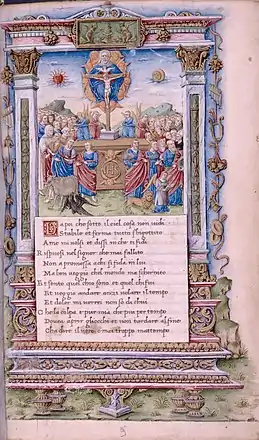 Da poi che sotto il ciel cosa non vidi
Stabile et ferma tutto sbigotito
A me mi volsi et dissi in che ti fidi
Risposi nel signor che mai fallito
Non a promessa a chi si fida in lui
Ma ben veggio chel mondo ma schernito
Et sento quel chio sono et quel chi fui
Et veggio andare anzi volare il tempo
Et doler mi vorrei non so di chui
Che la colpa e pur mia che piu per tempo
Doveva aprir gliocchi et non tardare al fine
Cha dire il vero omai troppo mattempo